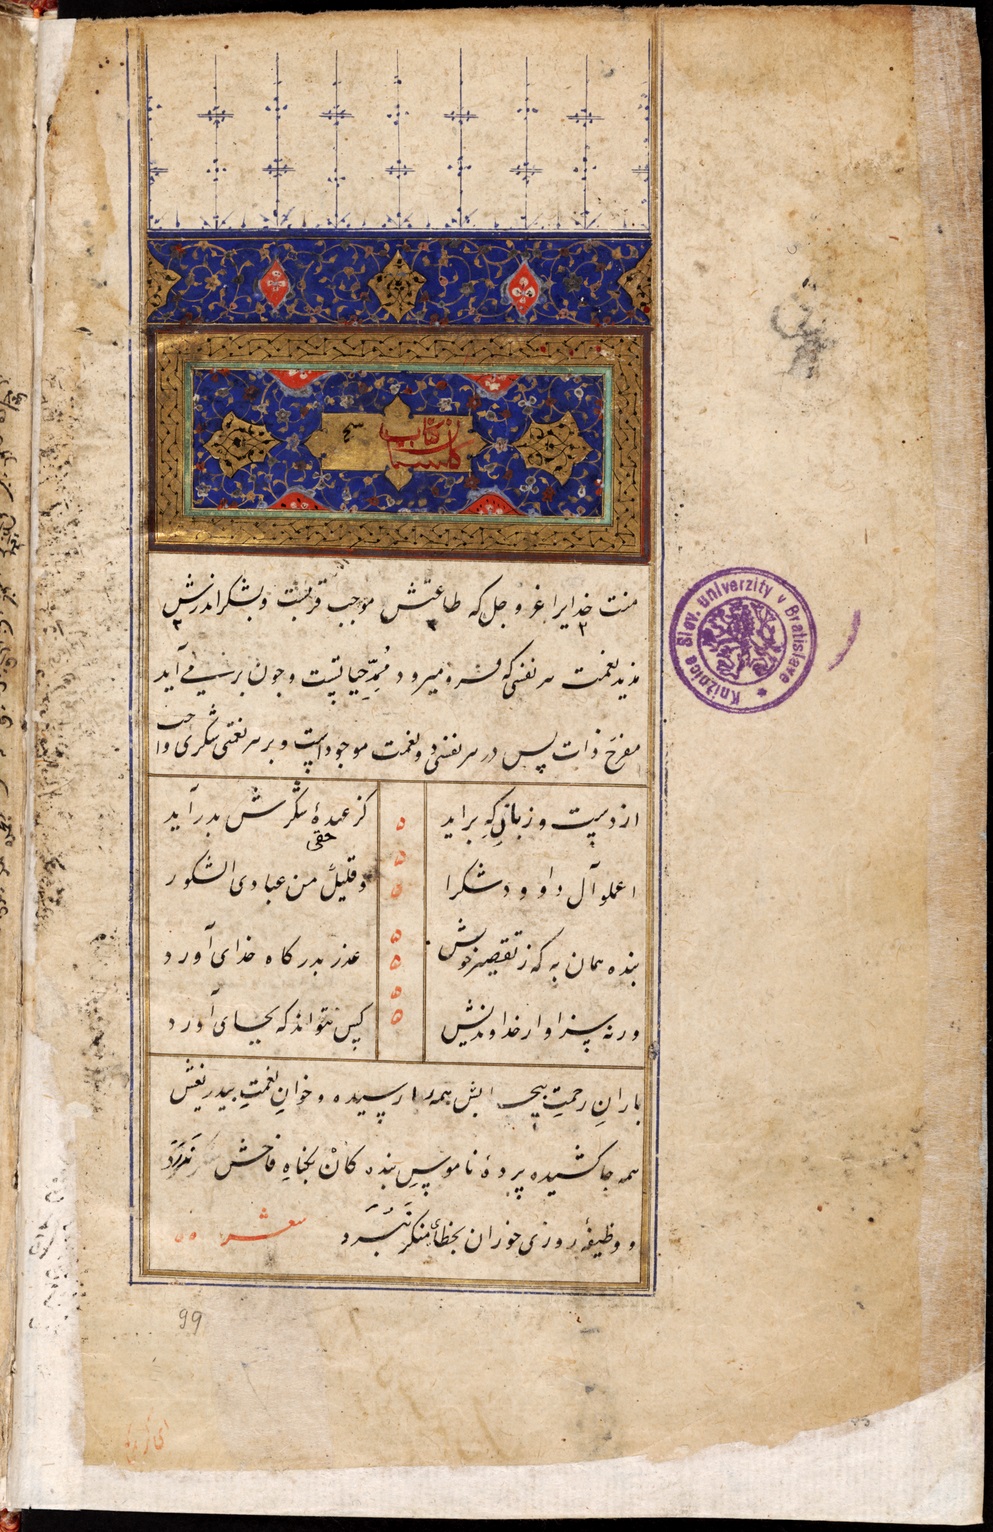 کتاب
گلستان
منت خدایرا عز و جل که طاعتش موجب قربتست و بشکر اندرش
مزید نعمت هر نفسی که فرو میرود مُمِدِّ حیاتست و چون بر می آید
مفرح ذات پس در هر نفسی دو نعمت موجود است و بر هر نعمتی شکری واجب
از دست و زبانِ که برآید کز عهدۀ شکرش بدر آید
اعملوا آل داوود شکرا و قلیلٌ من عبادی الشکور
بنده همان به که ز تقصیر خویش عذر بدرگاه خدای آورد
ورنه سزاوار خداوندیش کس نتواند که بجای آورد
بارانِ رحمتِ بیحسابش همه را رسیده و خوانِ نعمتِ بیدریغش
همه جا کشیده پردۀ ناموسِ بندگان بگناهِ فاحش نَدَرَد
و وظیفۀ روزی خوران بخطاءِ منکر نَبُرَد شعر
99
Knižnica Slov. univerzity v Bratislave